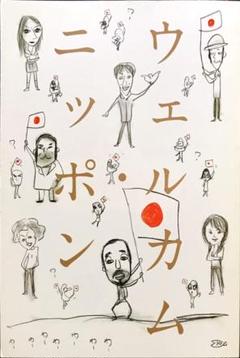 ウェルカム・
ニッポン